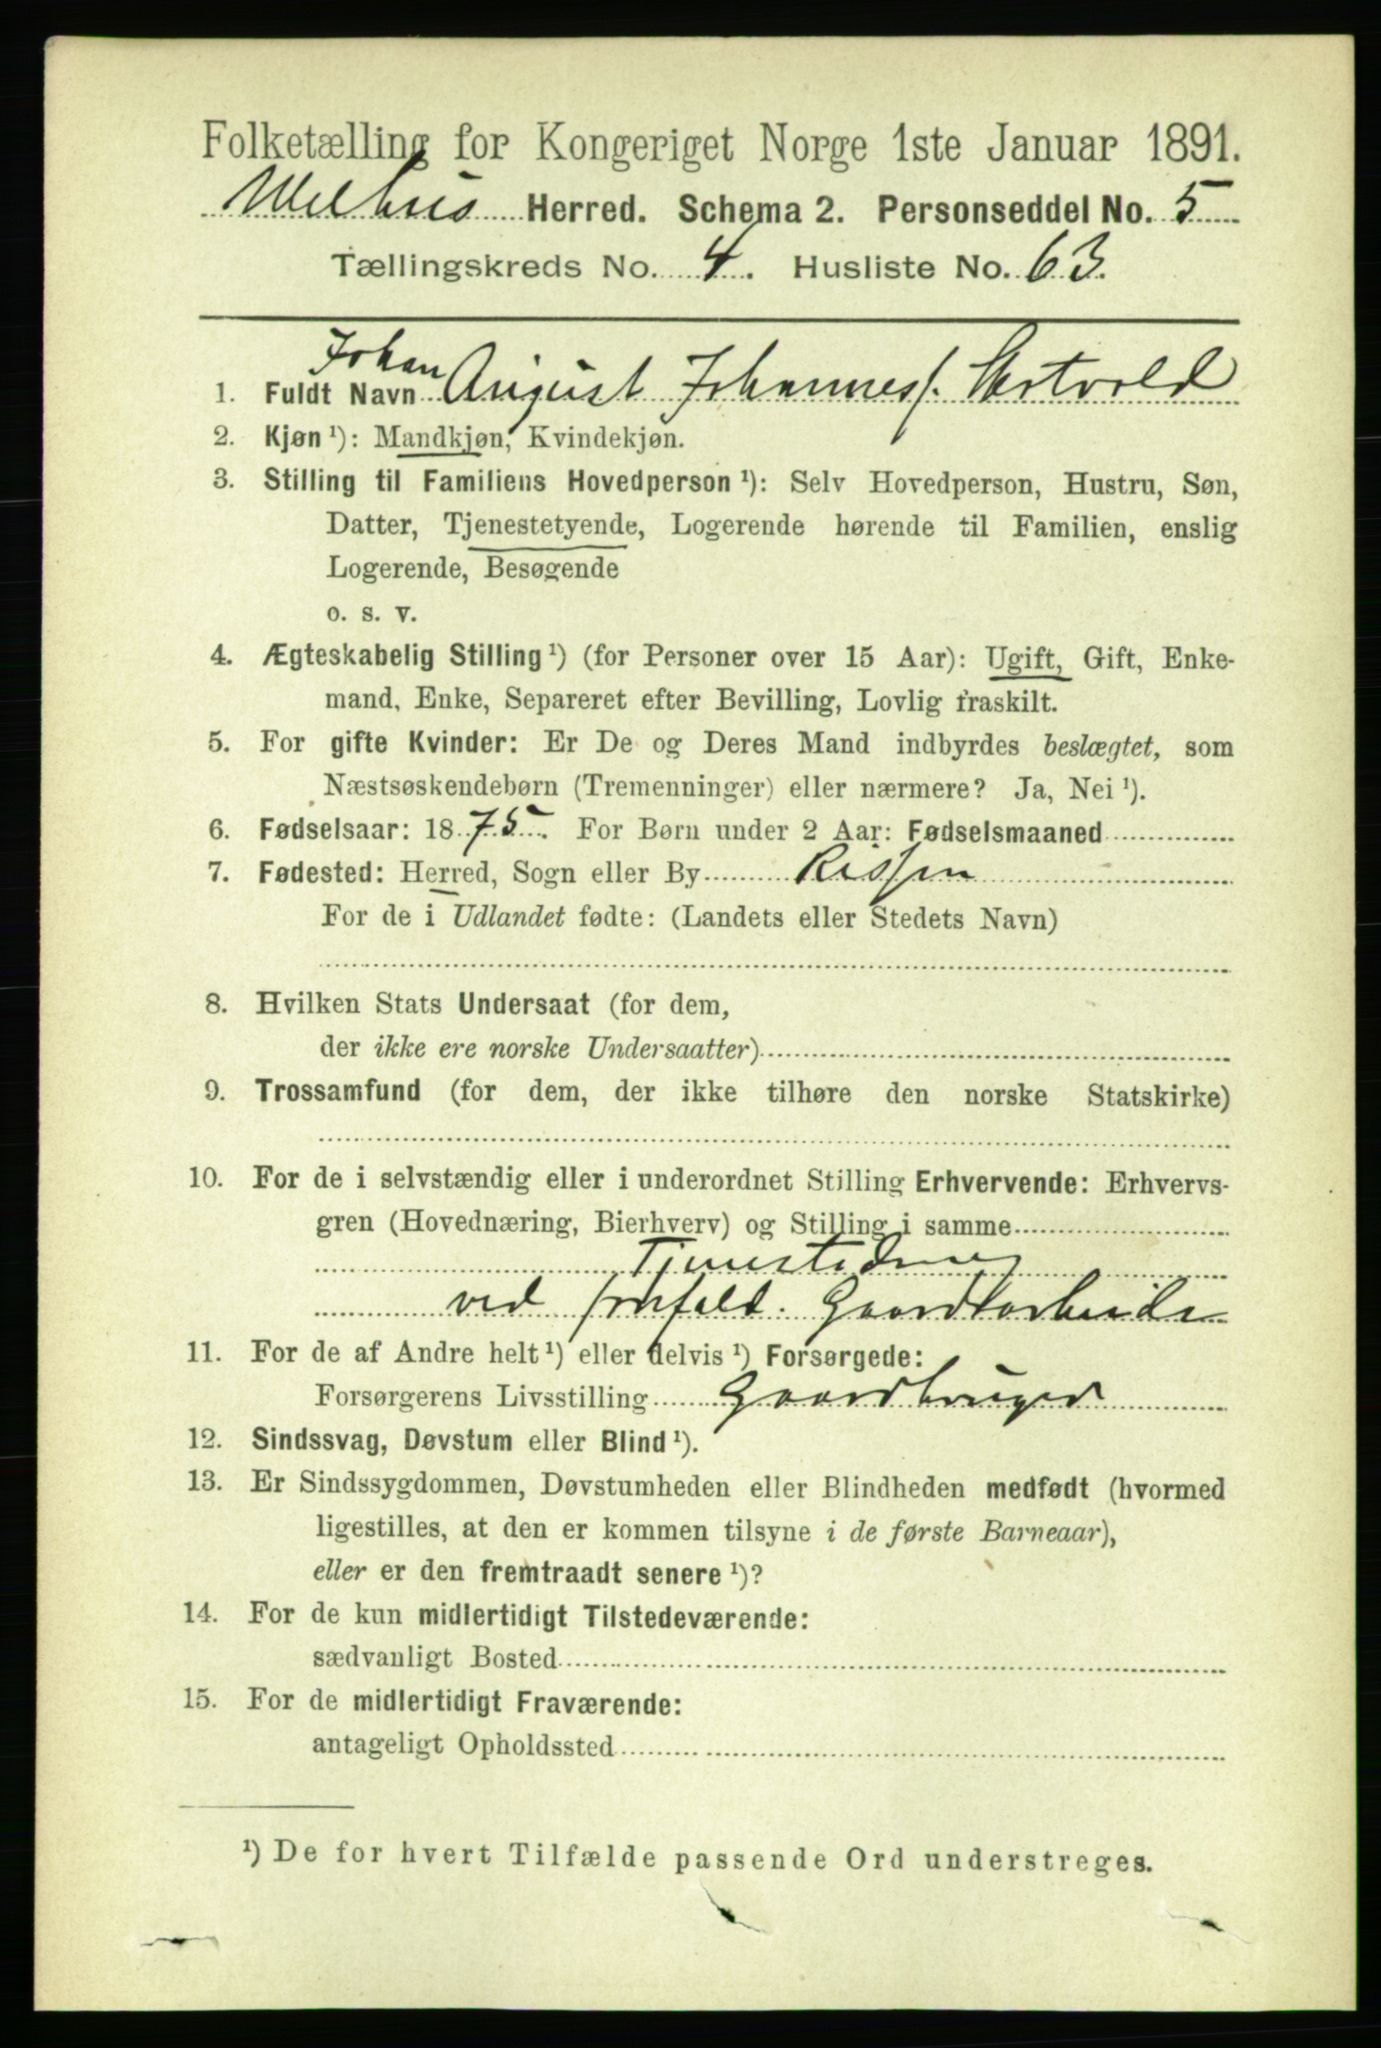 Folketælling for Kongeriget Norge 1ste Januar 1891.
Melhus Herred. Schema 2. Personseddel No. 5
Tællingskreds No. 4. Husliste No. 63.
Johan
1. Fuldt Navn August Johannes/.
2. Kjøn ¹): Mandkjøn, Kvindekjøn.
3. Stilling til Familiens Hovedperson ¹): Selv Hovedperson, Hustru, Søn,
Datter, Tjenestetyende, Logerende hørende til Familien, enslig
Logerende, Besøgende
o. s. v.
4. Ægteskabelig Stilling ¹) (for Personer over 15 Aar): Ugift, Gift, Enke-
mand, Enke, Separeret efter Bevilling, Lovlig fraskilt.
5. For gifte Kvinder: Er De og Deres Mand indbyrdes beslægtet, som
Næstsøskendebørn (Tremenninger) eller nærmere? Ja, Nei ¹).
6. Fødselsaar: 1875. For Børn under 2 Aar: Fødselsmaaned
7. Fødested: Herred, Sogn eller By Rissen
For de i Udlandet fødte: (Landets eller Stedets Navn)
8. Hvilken Stats Undersaat (for dem,
der ikke ere norske Undersaatter)
9. Trossamfund (for dem, der ikke tilhøre den norske Statskirke)
10. For de i selvstændig eller i underordnet Stilling Erhvervende: Erhvervs-
gren (Hovednæring, Bierhverv) og Stilling i samme
Tjenestedreng
ved forefald. Gaardsarbeide
11. For de af Andre helt ¹) eller delvis ¹) Forsørgede:
Forsørgerens Livsstilling Gaardbruger
12. Sindssvag, Døvstum eller Blind ¹).
13. Er Sindssygdommen, Døvstumheden eller Blindheden medfødt (hvormed
ligestilles, at den er kommen tilsyne i de første Barneaar),
eller er den fremtraadt senere ¹)?
14. For de kun midlertidigt Tilstedeværende:
sædvanligt Bosted
15. For de midlertidigt Fraværende:
antageligt Opholdssted
¹) De for hvert Tilfælde passende Ord understreges.